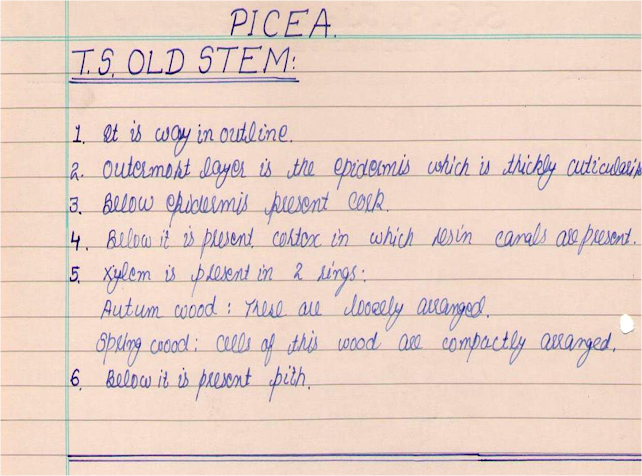 PICEA.
T.S. OLD STEM:
1. It is way in outline.
2. Outermost layer is the epidermis which is thickly cuticularis
3. Below epidermis present cork.
4. Below it is present cortex in which resin canals are present.
5. Xylem is present in 2 rings:
Autum wood: These are loosely arranged.
Spring wood: cells of this wood are compactly arranged.
6. Below it is present pith.